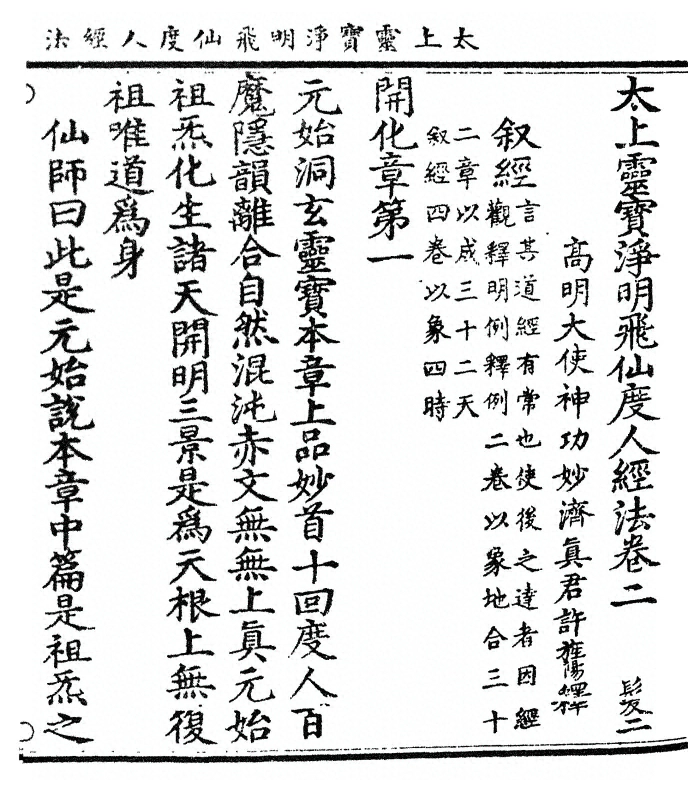 太上靈寶淨明飛仙度人經法
太上靈寶淨明飛仙度人經法卷二 髮二
高明大使神功妙濟眞君許旌陽釋
叙經言其道經有常也使後之達者因經
觀釋明例釋例二卷以象地合三十
二章以成三十二天
叙經四卷以象四時
開化章第一
元始洞玄靈寶本章上品妙首十回度人百
魔隱韻離合自然混沌赤文無無上眞元始
祖炁化生諸天開明三景是爲天根上無復
祖唯道爲身
仙師曰此是元始說本章中篇是祖炁之